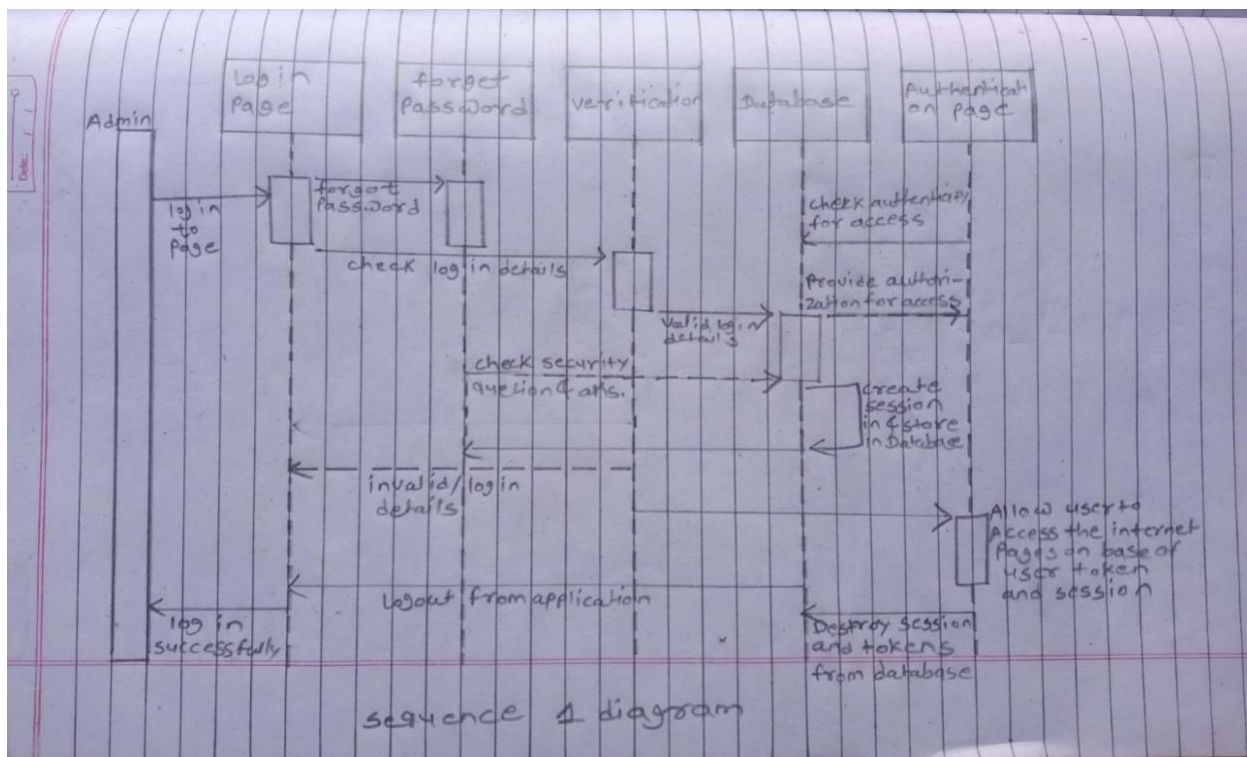 Date:
Admin
Log in
Page
forget
Password
verification
Database
Authenticati
on page
log in
to
Page
forgot
Password
check log in details
check authenticity
for access
Provide authori-
zation for access
Valid log in
details
check security
quetion & ans.
create
session
in & store
in Database
invalid/log in
details
Allow user to
Access the internet
Pages on base of
user token
and session
Logout from application
log in
successfully
Destroy session
and tokens
from database
sequence 1 diagram